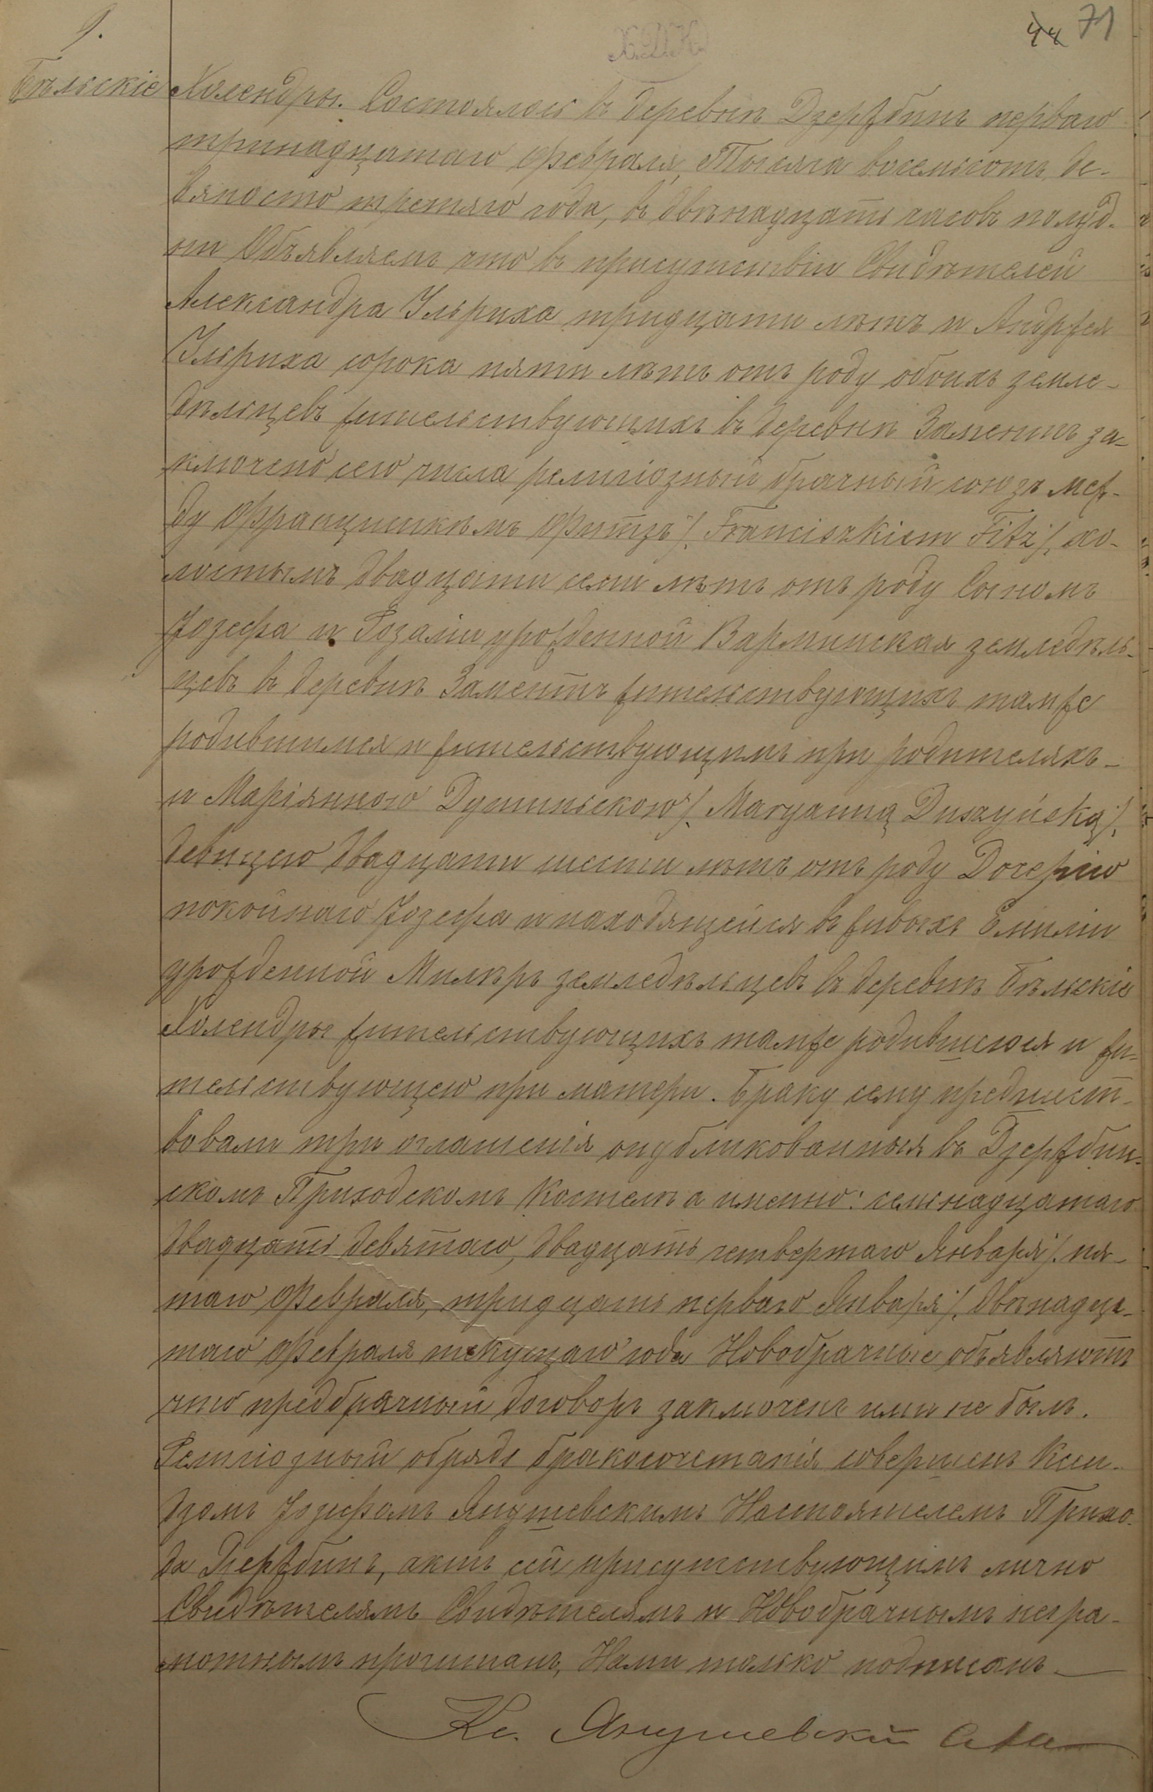 9.
44 71
Х.Д.К.
Бѣльскіе Холендры. Состоялось въ деревнѣ Дзержбинъ перваго
тринадцатаго Февраля, Тысяча восемьсотъ де-
вяносто третяго года, въ двѣнадцать часовъ полуд-
ни Объявляемъ что въ присутствіи Свидѣтелей
Александра Ульриха тридцати лѣтъ и Андржея
Ульриха сорока пяти лѣтъ отъ роду обоихъ земле-
дѣльцевъ жительствующихъ въ деревнѣ Заментъ за-
ключено сего числа религіозный брачный союзъ меж-
ду Францишкѣмъ Фитзъ /: Franciszkiem Fitz :/ хо-
лостымъ двадцати семи лѣтъ отъ роду Сыномъ
Іозефа и Розаліи урожденной Варминская земледѣль-
цевъ въ деревнѣ Заментъ жительствующихъ тамже
родившимся и жительствующимъ при родителяхъ -
и Маріянною Душиньскою /: Maryanną Duszyńską :/
девицею двадцати шести лѣтъ отъ роду Дочерію
покойнаго Іозефа и находящейся въ живыхъ Емиліи
урожденной Милкръ земледѣльцевъ въ деревнѣ Бѣльскіе
Холендры жительствующихъ тамже родившеюся и жи-
тельствующею при матери. Браку сему предшест-
вовали три оглашенія опубликованныя въ Дзержбин-
скомъ Приходскомъ Костелѣ а именно: семнадцатаго
двадцать девятаго, двадцать четвертаго Января /: пя-
таго Февраля, тридцать перваго Января /: двѣнадца-
таго Февраля текущаго года Новобрачные объявляютъ
что предбрачный договоръ заключенъ ими не былъ.
Религіозный обрядъ бракосочетанія совершенъ Ксен-
дзомъ Іозефомъ Янушевскимъ Настоятелемъ Прихо-
да Дзержбинъ, актъ сей присутствующимъ лично
Свидѣтелямъ Свидѣтелямъ и Новобрачнымъ негра-
мотнымъ прочитанъ, Нами только подписанъ
Кс. Янушевскій